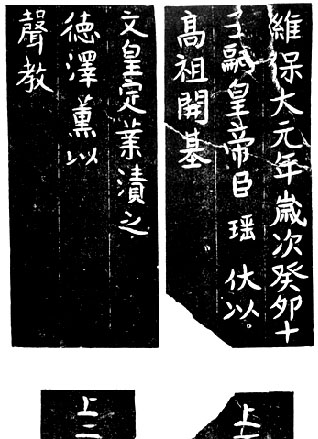 維保大元年歲次癸卯十
子嗣皇帝臣瑶伏以。
髙祖開基
文皇定業漬之
徳澤薰以
聲教
上
上二